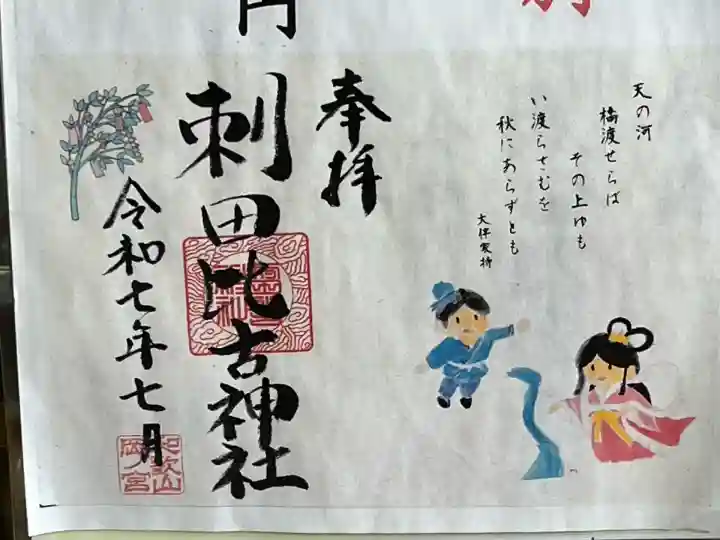 円
別
天の河
橋渡せらば
その上ゆも
い渡らさむを
秋にあらずとも
大伴家持
奉拝
刺田比古神社
令和七年七月
岡ノ宮